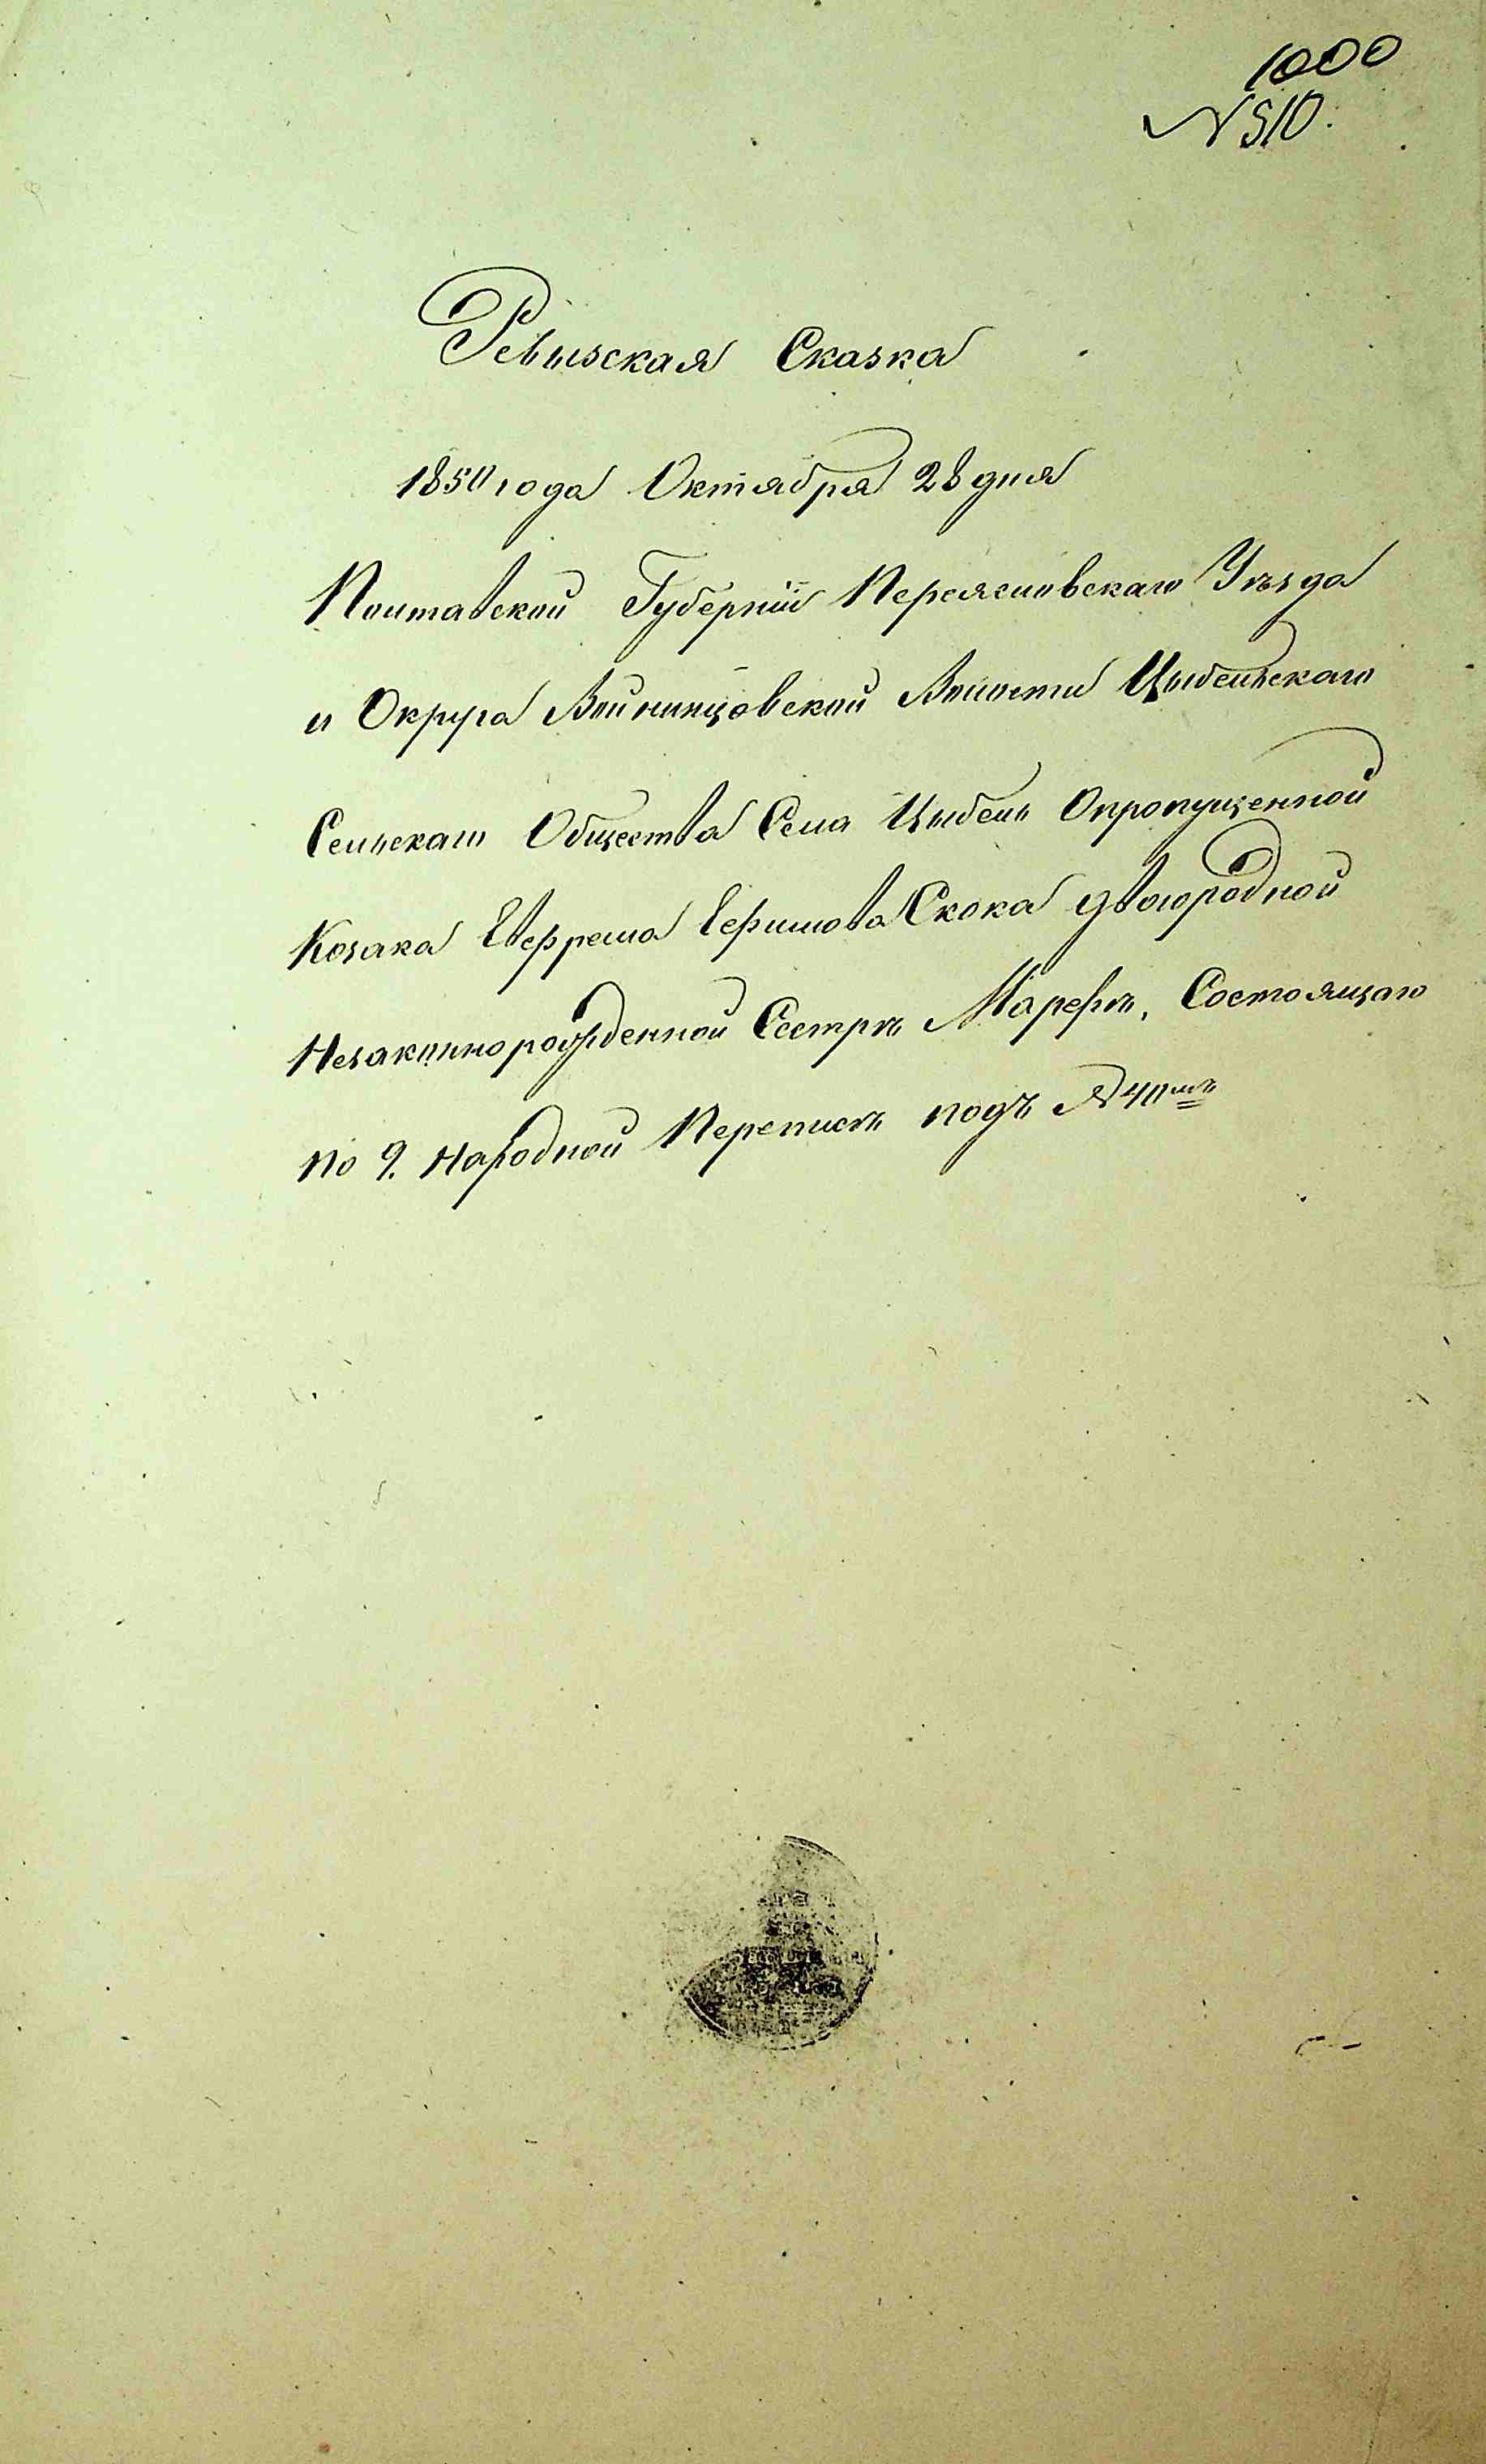 1000
№ 510.
Ревизская Сказка
1850 года Октября 28 дня
Полтавской Губерніи Переяславскаго Уѣзда
и Округа Войнинцовской Волости Цыбельскаго
Сельскаго Общества Села Цыбель О пропущенной
Козака Евфрема Ефимова Скока двоюродной
Незаконнорожденной Сестрѣ Марефѣ, Состоящаго
по 9. Народной Переписѣ подъ № 40мъ